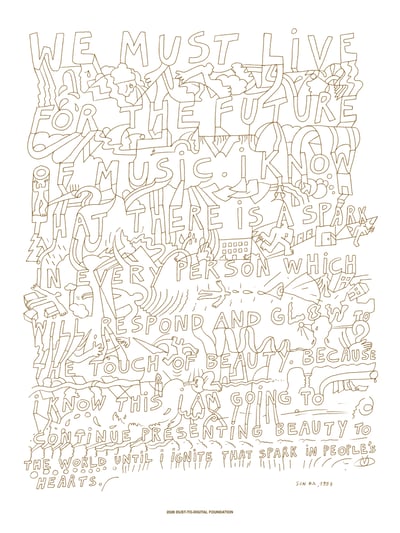 WE MUST LIVE
FOR THE FUTURE
OF MUSIC. I KNOW
THAT THERE IS A SPARK
IN EVERY PERSON WHICH
WILL RESPOND AND GLOW TO
THE TOUCH OF BEAUTY. BECAUSE
I KNOW THIS I AM GOING TO
CONTINUE PRESENTING BEAUTY TO
THE WORLD UNTIL I IGNITE THAT SPARK IN PEOPLE'S
HEARTS.
SUN RA, 1953
DUST-TO-DIGITAL FOUNDATION